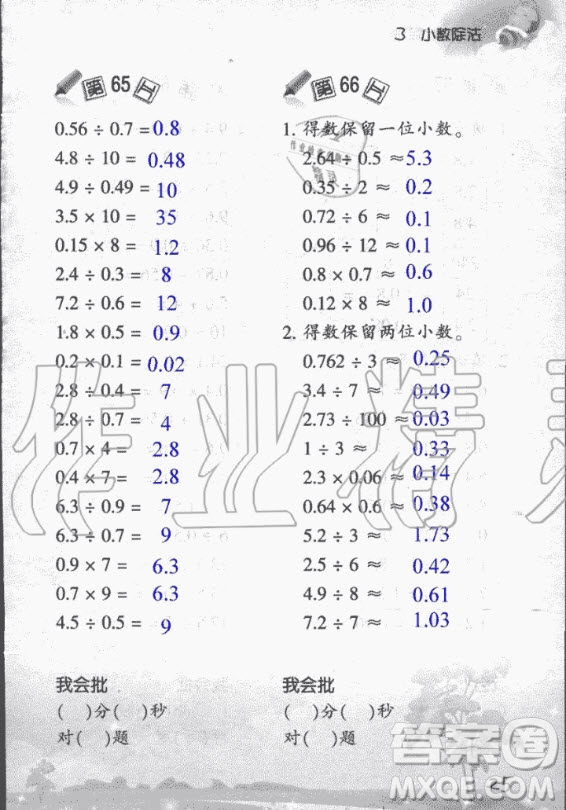 3 小数除法
第65日
0.56 ÷ 0.7 = 0.8
4.8 ÷ 10 = 0.48
4.9 ÷ 0.49 = 10
3.5 × 10 = 35
0.15 × 8 = 1.2
2.4 ÷ 0.3 = 8
7.2 ÷ 0.6 = 12
1.8 × 0.5 = 0.9
0.2 × 0.1 = 0.02
2.8 ÷ 0.4 = 7
2.8 ÷ 0.7 = 4
0.7 × 4 = 2.8
0.4 × 7 = 2.8
6.3 ÷ 0.9 = 7
6.3 ÷ 0.7 = 9
0.9 × 7 = 6.3
0.7 × 9 = 6.3
4.5 ÷ 0.5 = 9
我会批
( )分( )秒
对( )题
第66日
1. 得数保留一位小数。
2.64 ÷ 0.5 ≈ 5.3
0.35 ÷ 2 ≈ 0.2
0.72 ÷ 6 ≈ 0.1
0.96 ÷ 12 ≈ 0.1
0.8 × 0.7 ≈ 0.6
0.12 × 8 ≈ 1.0
2. 得数保留两位小数。
0.762 ÷ 3 ≈ 0.25
3.4 ÷ 7 ≈ 0.49
2.73 ÷ 100 ≈ 0.03
1 ÷ 3 ≈ 0.33
2.3 × 0.06 ≈ 0.14
0.64 × 0.6 ≈ 0.38
5.2 ÷ 3 ≈ 1.73
2.5 ÷ 6 ≈ 0.42
4.9 ÷ 8 ≈ 0.61
7.2 ÷ 7 ≈ 1.03
我会批
( )分( )秒
对( )题
作业精灵
答案圈
MXQE.COM